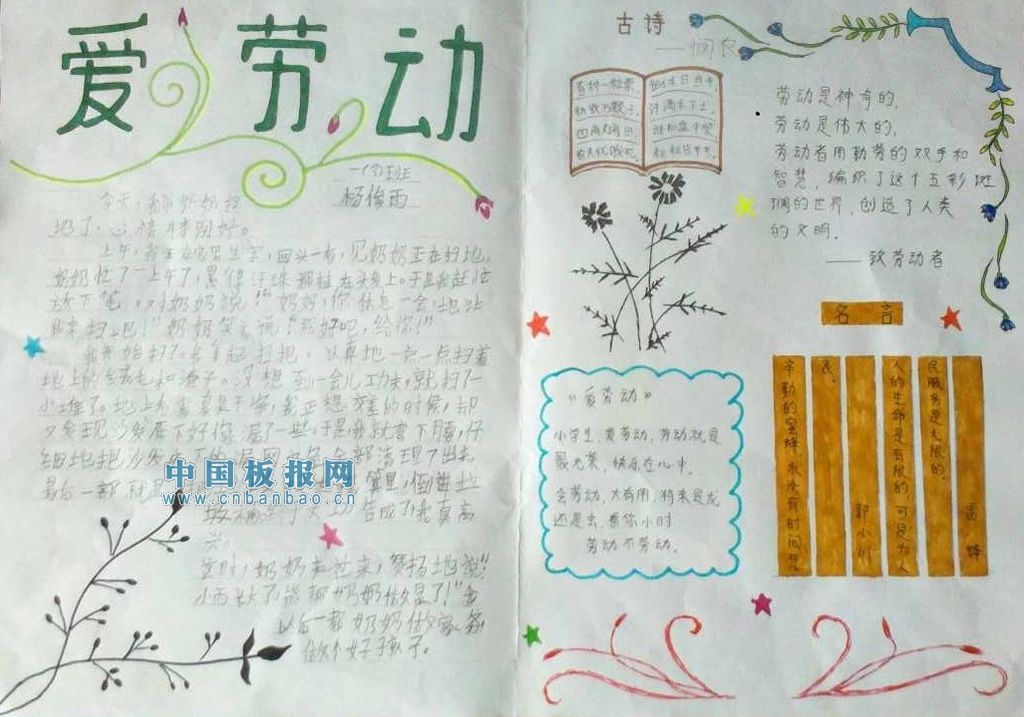 爱劳动
一(3)班
杨俊西
今天,帮奶奶扫
地了,心情特别好。
上午,我正在写生字,回头一看,见奶奶正在扫地,
奶奶忙了一上午了,累得汗珠都挂在头发上。于是我赶忙
放下笔,对奶奶说:“奶奶,你休息一会,地让
我来扫吧!”奶奶笑了说:“那好吧,给你!”
我开始扫了。我拿起扫把,认真地一点一点扫着
地上的和渣子。没想到一会儿功夫,就扫了一
小堆了。地上干净,我正想交差的时候,却
又发现沙发底下好像漏了一些,于是我就弯下腰,仔
细地把沙发底下的全部清理了出来。
最后一部
大功告成了,我真高
兴。
这时,奶奶走过来,赞扬地说:“
小西长大了,能帮奶奶做家务了!”我
以后一帮奶奶做家务,
做个好孩子。
中国板报网
www.cnbanbao.cn
古诗
——悯农
春种一粒粟,
秋收万颗子。
四海无闲田,
农夫犹饿死。
锄禾日当午,
汗滴禾下土。
谁知盘中餐,
粒粒皆辛苦。
劳动是神奇的,
劳动是伟大的,
劳动者用勤劳的双手和
智慧,编织了这个五彩斑
斓的世界,创造了人类
的文明。
——致劳动者
名言
雷锋
民服务是无限的。
人的生命是有限的,可是为人
郭小川
哀。
辛勤的蜜蜂,永没有时间悲
《爱劳动》
小学生,爱劳动,劳动就是
最光荣,快乐在心中。
会劳动,大有用,将来是龙
还是虫,看你小时
劳动不劳动。